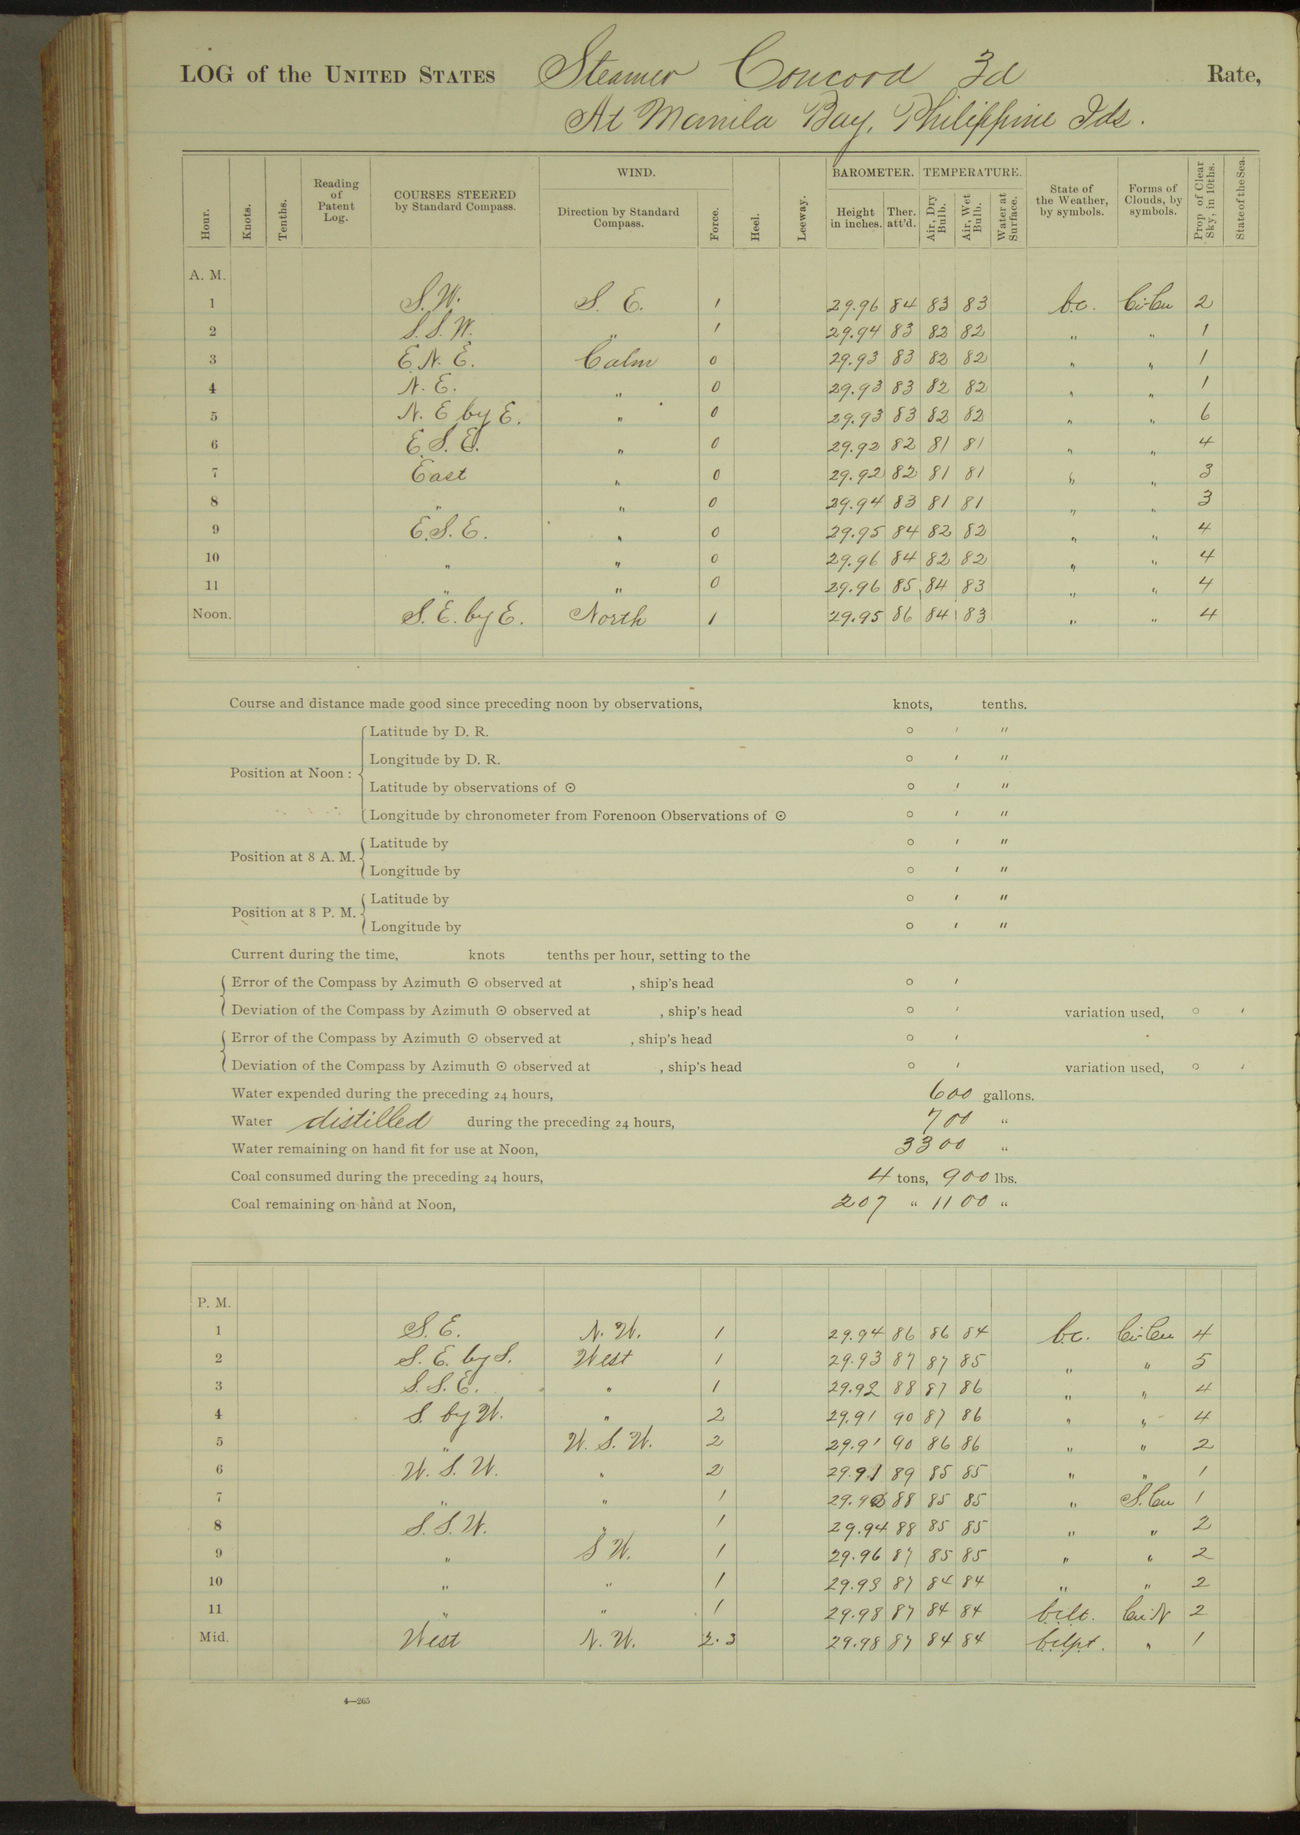 LOG of the UNITED STATES Steamer Concord 3d Rate,
At Manila Bay, Philippine Ids.
Hour. Knots. Tenths. Reading of Patent Log. COURSES STEERED by Standard Compass. WIND. Direction by Standard Compass. Force. Heel. Leeway. BAROMETER. Height in inches. Ther. att'd. TEMPERATURE. Air, Dry Bulb. Air, Wet Bulb. Water at Surface. State of the Weather, by symbols. Forms of Clouds, by symbols. Prop. of Clear Sky, in 10ths. State of the Sea.
A. M.
1 S.W. S. E. 1 29.96 84 83 83 b.c. Ci-Cu 2
2 S.S.W. " 1 29.94 83 82 82 " " 1
3 E.N.E. Calm 0 29.93 83 82 82 " " 1
4 N.E. " 0 29.93 83 82 82 " " 1
5 N.E by E. " 0 29.93 83 82 82 " " 6
6 E.S.E. " 0 29.92 82 81 81 " " 4
7 East " 0 29.92 82 81 81 " " 3
8 " " 0 29.94 83 81 81 " " 3
9 E.S.E. " 0 29.95 84 82 82 " " 4
10 " " 0 29.96 84 82 82 " " 4
11 " " 0 29.96 85 84 83 " " 4
Noon. S.E. by E. North 1 29.95 86 84 83 " " 4
Course and distance made good since preceding noon by observations, knots, tenths.
Position at Noon : Latitude by D. R. ° ′ ″
Longitude by D. R. ° ′ ″
Latitude by observations of ☉ ° ′ ″
Longitude by chronometer from Forenoon Observations of ☉ ° ′ ″
Position at 8 A. M. Latitude by ° ′ ″
Longitude by ° ′ ″
Position at 8 P. M. Latitude by ° ′ ″
Longitude by ° ′ ″
Current during the time, knots tenths per hour, setting to the
Error of the Compass by Azimuth ☉ observed at , ship's head ° ′
Deviation of the Compass by Azimuth ☉ observed at , ship's head ° ′ variation used, ° ′
Error of the Compass by Azimuth ☉ observed at , ship's head ° ′
Deviation of the Compass by Azimuth ☉ observed at , ship's head ° ′ variation used, ° ′
Water expended during the preceding 24 hours, 600 gallons.
Water distilled during the preceding 24 hours, 700 "
Water remaining on hand fit for use at Noon, 3300 "
Coal consumed during the preceding 24 hours, 4 tons, 900 lbs.
Coal remaining on hand at Noon, 207 " 1100 "
P. M.
1 S.E. N.W. 1 29.94 86 86 84 b.c. Ci-Cu 4
2 S.E. by S. West 1 29.93 87 87 85 " " 5
3 S.S.E. " 1 29.92 88 87 86 " " 4
4 S. by W. " 2 29.91 90 87 86 " " 4
5 " W.S.W. 2 29.91 90 86 86 " " 2
6 W.S.W. " 2 29.91 89 85 85 " " 1
7 " " 1 88 85 85 " S.Cu 1
8 S.S.W. " 1 29.94 88 85 85 " " 2
9 " S W. 1 29.96 87 85 85 " " 2
10 " " 1 29.98 87 84 84 " " 2
11 " " 1 29.98 87 84 84 b.c.l.t. Cu-N 2
Mid. West N.W. 2.3 29.98 87 84 84 b.c.l.p.t. " 1
4—265